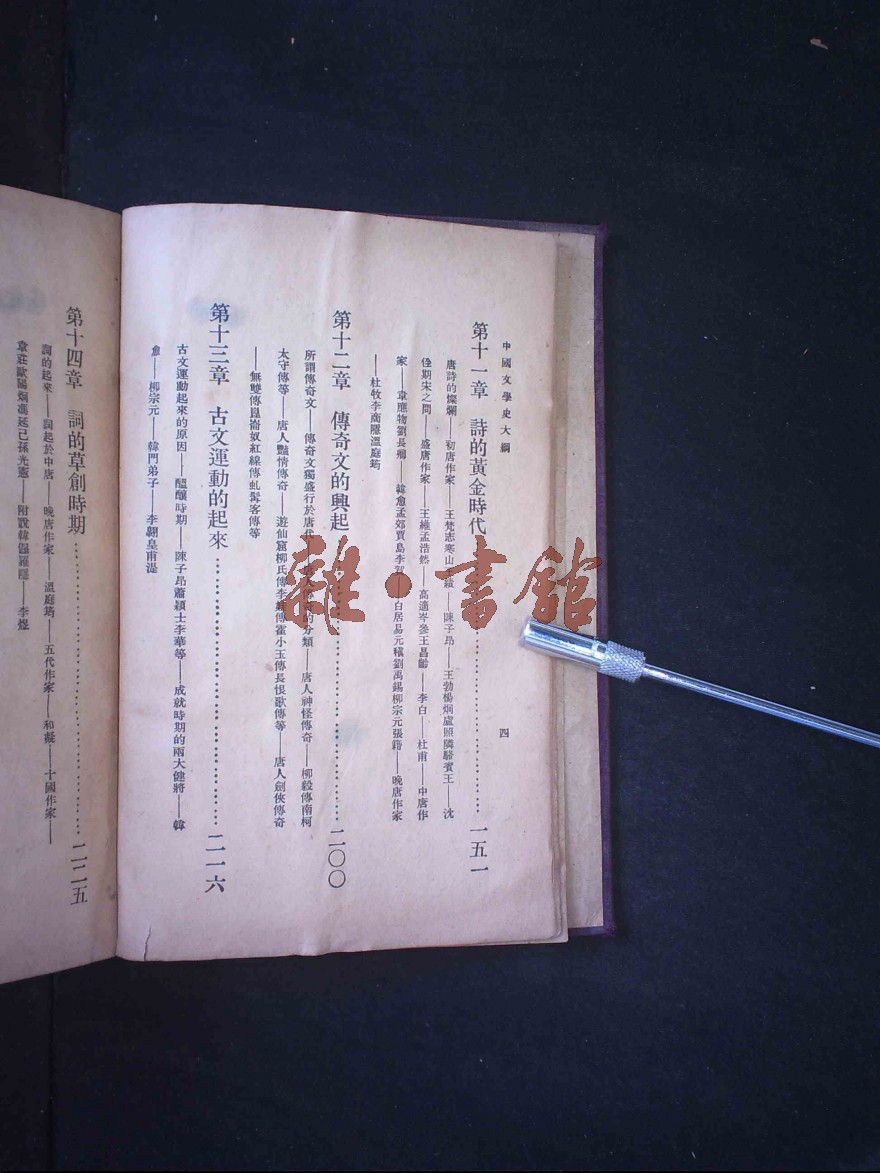 中國文學史大綱
四
第十一章　詩的黃金時代……一五一
唐詩的燦爛——初唐作家——王梵志寒山王績——陳子昂——王勃楊烱盧照隣駱賓王——沈
佺期宋之問——盛唐作家——王維孟浩然——高適岑參王昌齡——李白——杜甫——中唐作
家——韋應物劉長卿——韓愈孟郊賈島李賀——白居易元稹劉禹錫柳宗元張籍——晚唐作家
——杜牧李商隱溫庭筠
第十二章　傳奇文的興起……二〇〇
所謂傳奇文——傳奇文獨盛行於唐代——傳奇的分類——唐人神怪傳奇——柳毅傳南柯
太守傳等——唐人豔情傳奇——遊仙窟柳氏傳李娃傳霍小玉傳長恨歌傳等——唐人劍俠傳奇
——無雙傳崑崙奴紅線傳虬髯客傳等
第十三章　古文運動的起來……二一六
古文運動起來的原因——醞釀時期——陳子昂蕭穎士李華等——成就時期的兩大健將——韓
愈——柳宗元——韓門弟子——李翱皇甫湜
第十四章　詞的草創時期……二二五
詞的起來——詞起於中唐——晚唐作家——溫庭筠——五代作家——和凝——十國作家——
韋莊歐陽烱馮延巳孫光憲——附說韓偓羅隱——李煜
雜·書館